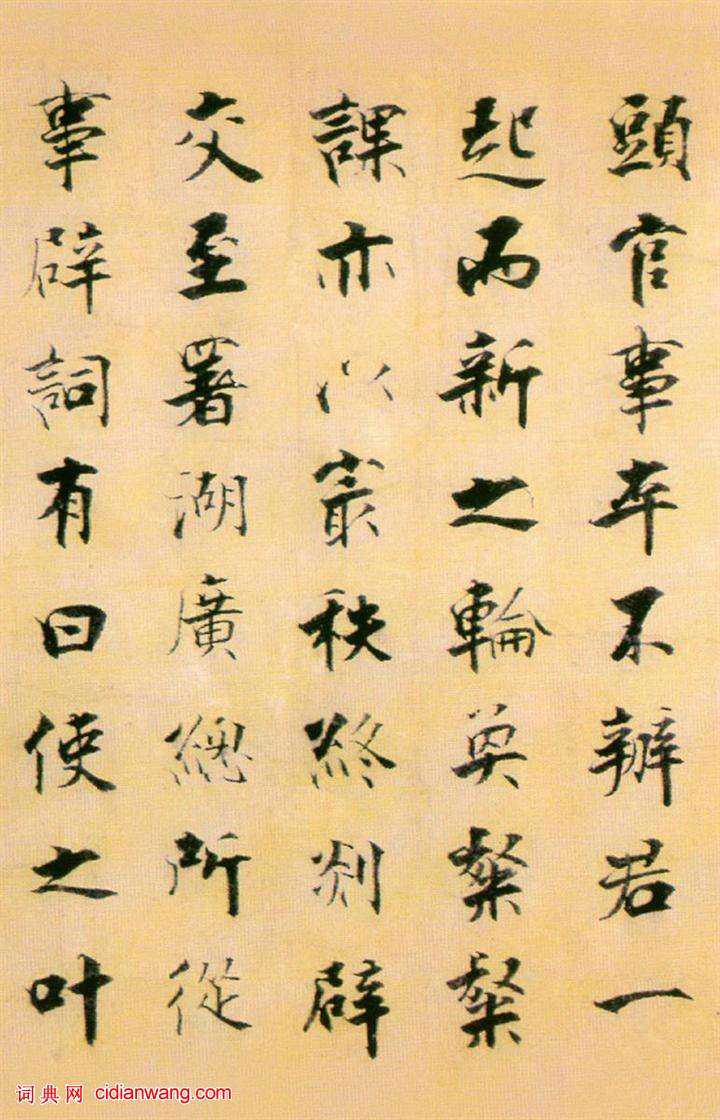 頭官事卒不辦君一
起而新之輪奐粲粲
課亦以最秩終剡辟
交至署湖廣總所從
事辟詞有曰使之叶
词典网 cidianwang.com